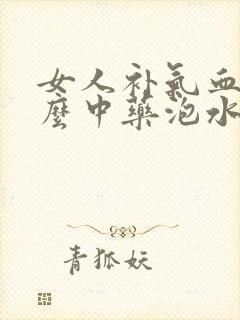 女人补气血
麼中藥泡水
青狐妖